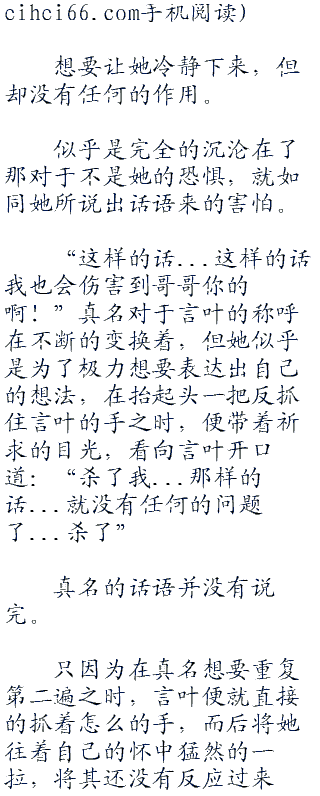 cihci66.com手机阅读)
想要让她冷静下来，但
却没有任何的作用。
似乎是完全的沉沦在了
那对于不是她的恐惧，就如
同她所说出话语来的害怕。
“这样的话...这样的话
我也会伤害到哥哥你的
啊！”真名对于言叶的称呼
在不断的变换着，但她似乎
是为了极力想要表达出自己
的想法，在抬起头一把反抓
住言叶的手之时，便带着祈
求的目光，看向言叶开口
道：“杀了我...那样的
话...就没有任何的问题
了...杀了”
真名的话语并没有说
完。
只因为在真名想要重复
第二遍之时，言叶便就直接
的抓着怎么的手，而后将她
往着自己的怀中猛然的一
拉，将其还没有反应过来